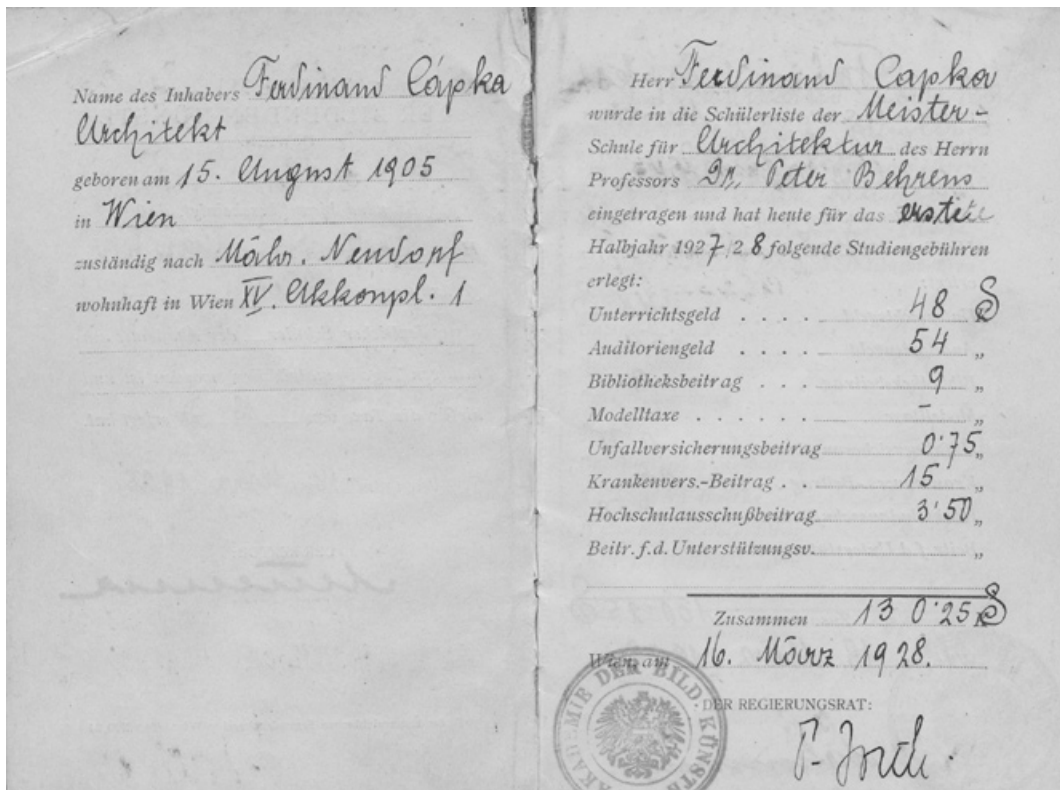 Name des Inhabers Ferdinand Cápka
Architekt
geboren am 15. August 1905
in Wien
zuständig nach Mähr. Neudorf
wohnhaft in Wien XV. Akkonpl. 1
Herr Ferdinand Capka
wurde in die Schülerliste der Meister-
Schule für Architektur des Herrn
Professors Dr. Peter Behrens
eingetragen und hat heute für das erste
Halbjahr 1927/28 folgende Studiengebühren
erlegt:
Unterrichtsgeld . . . . 48 S
Auditoriengeld . . . . 54 „
Bibliotheksbeitrag . . . 9 „
Modelltaxe . . . . . . – „
Unfallversicherungsbeitrag 0·75 „
Krankenvers.-Beitrag . . 15 „
Hochschulausschußbeitrag 3·50 „
Beitr. f. d. Unterstützungsv. „
Zusammen 130·25 S
Wien, am 16. März 1928.
AKADEMIE DER BILD. KÜNSTE
DER REGIERUNGSRAT: